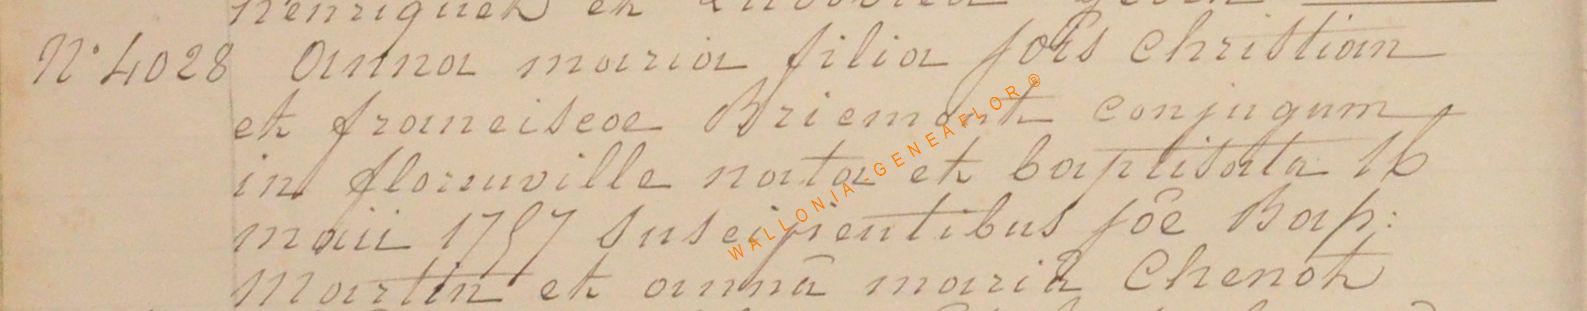 henriquet et Ludovica
N° 4028 Anna maria filia jois Christian
et franciscoe Briemont conjugum
in florenville nata et baptisata 16
maii 1757 suscipientibus jôe Bap:
Martin et annā mariā Chenot
WALLONIA-GENEAFLOR®